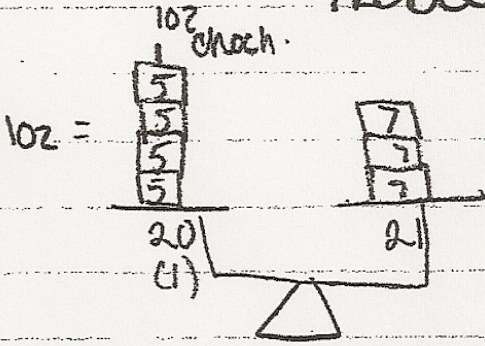 1oz
choch.
5
5
1oz =
5
5
7
7
7
20
(1)
21